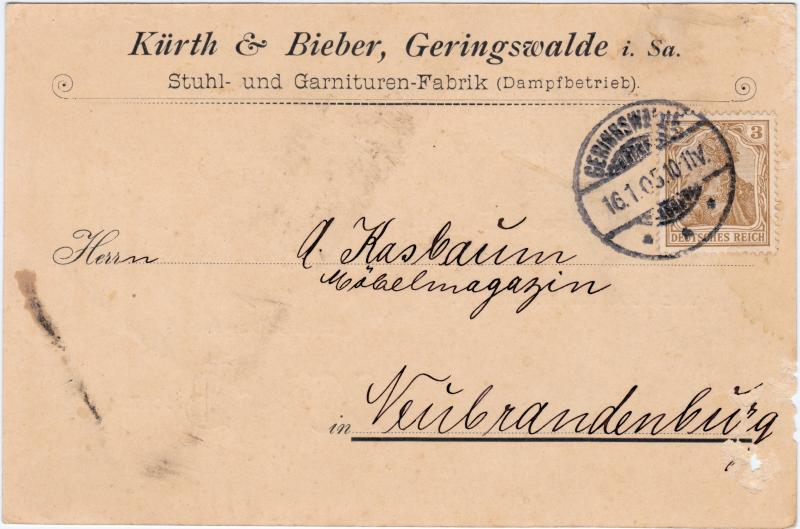 Kürth & Bieber, Geringswalde i. Sa.
Stuhl- und Garnituren-Fabrik (Dampfbetrieb).
GERINGSWALDE
16.1.05.10-11V.
3
DEUTSCHES REICH
Herrn A. Kasbaum
Möbelmagazin
in Neubrandenburg